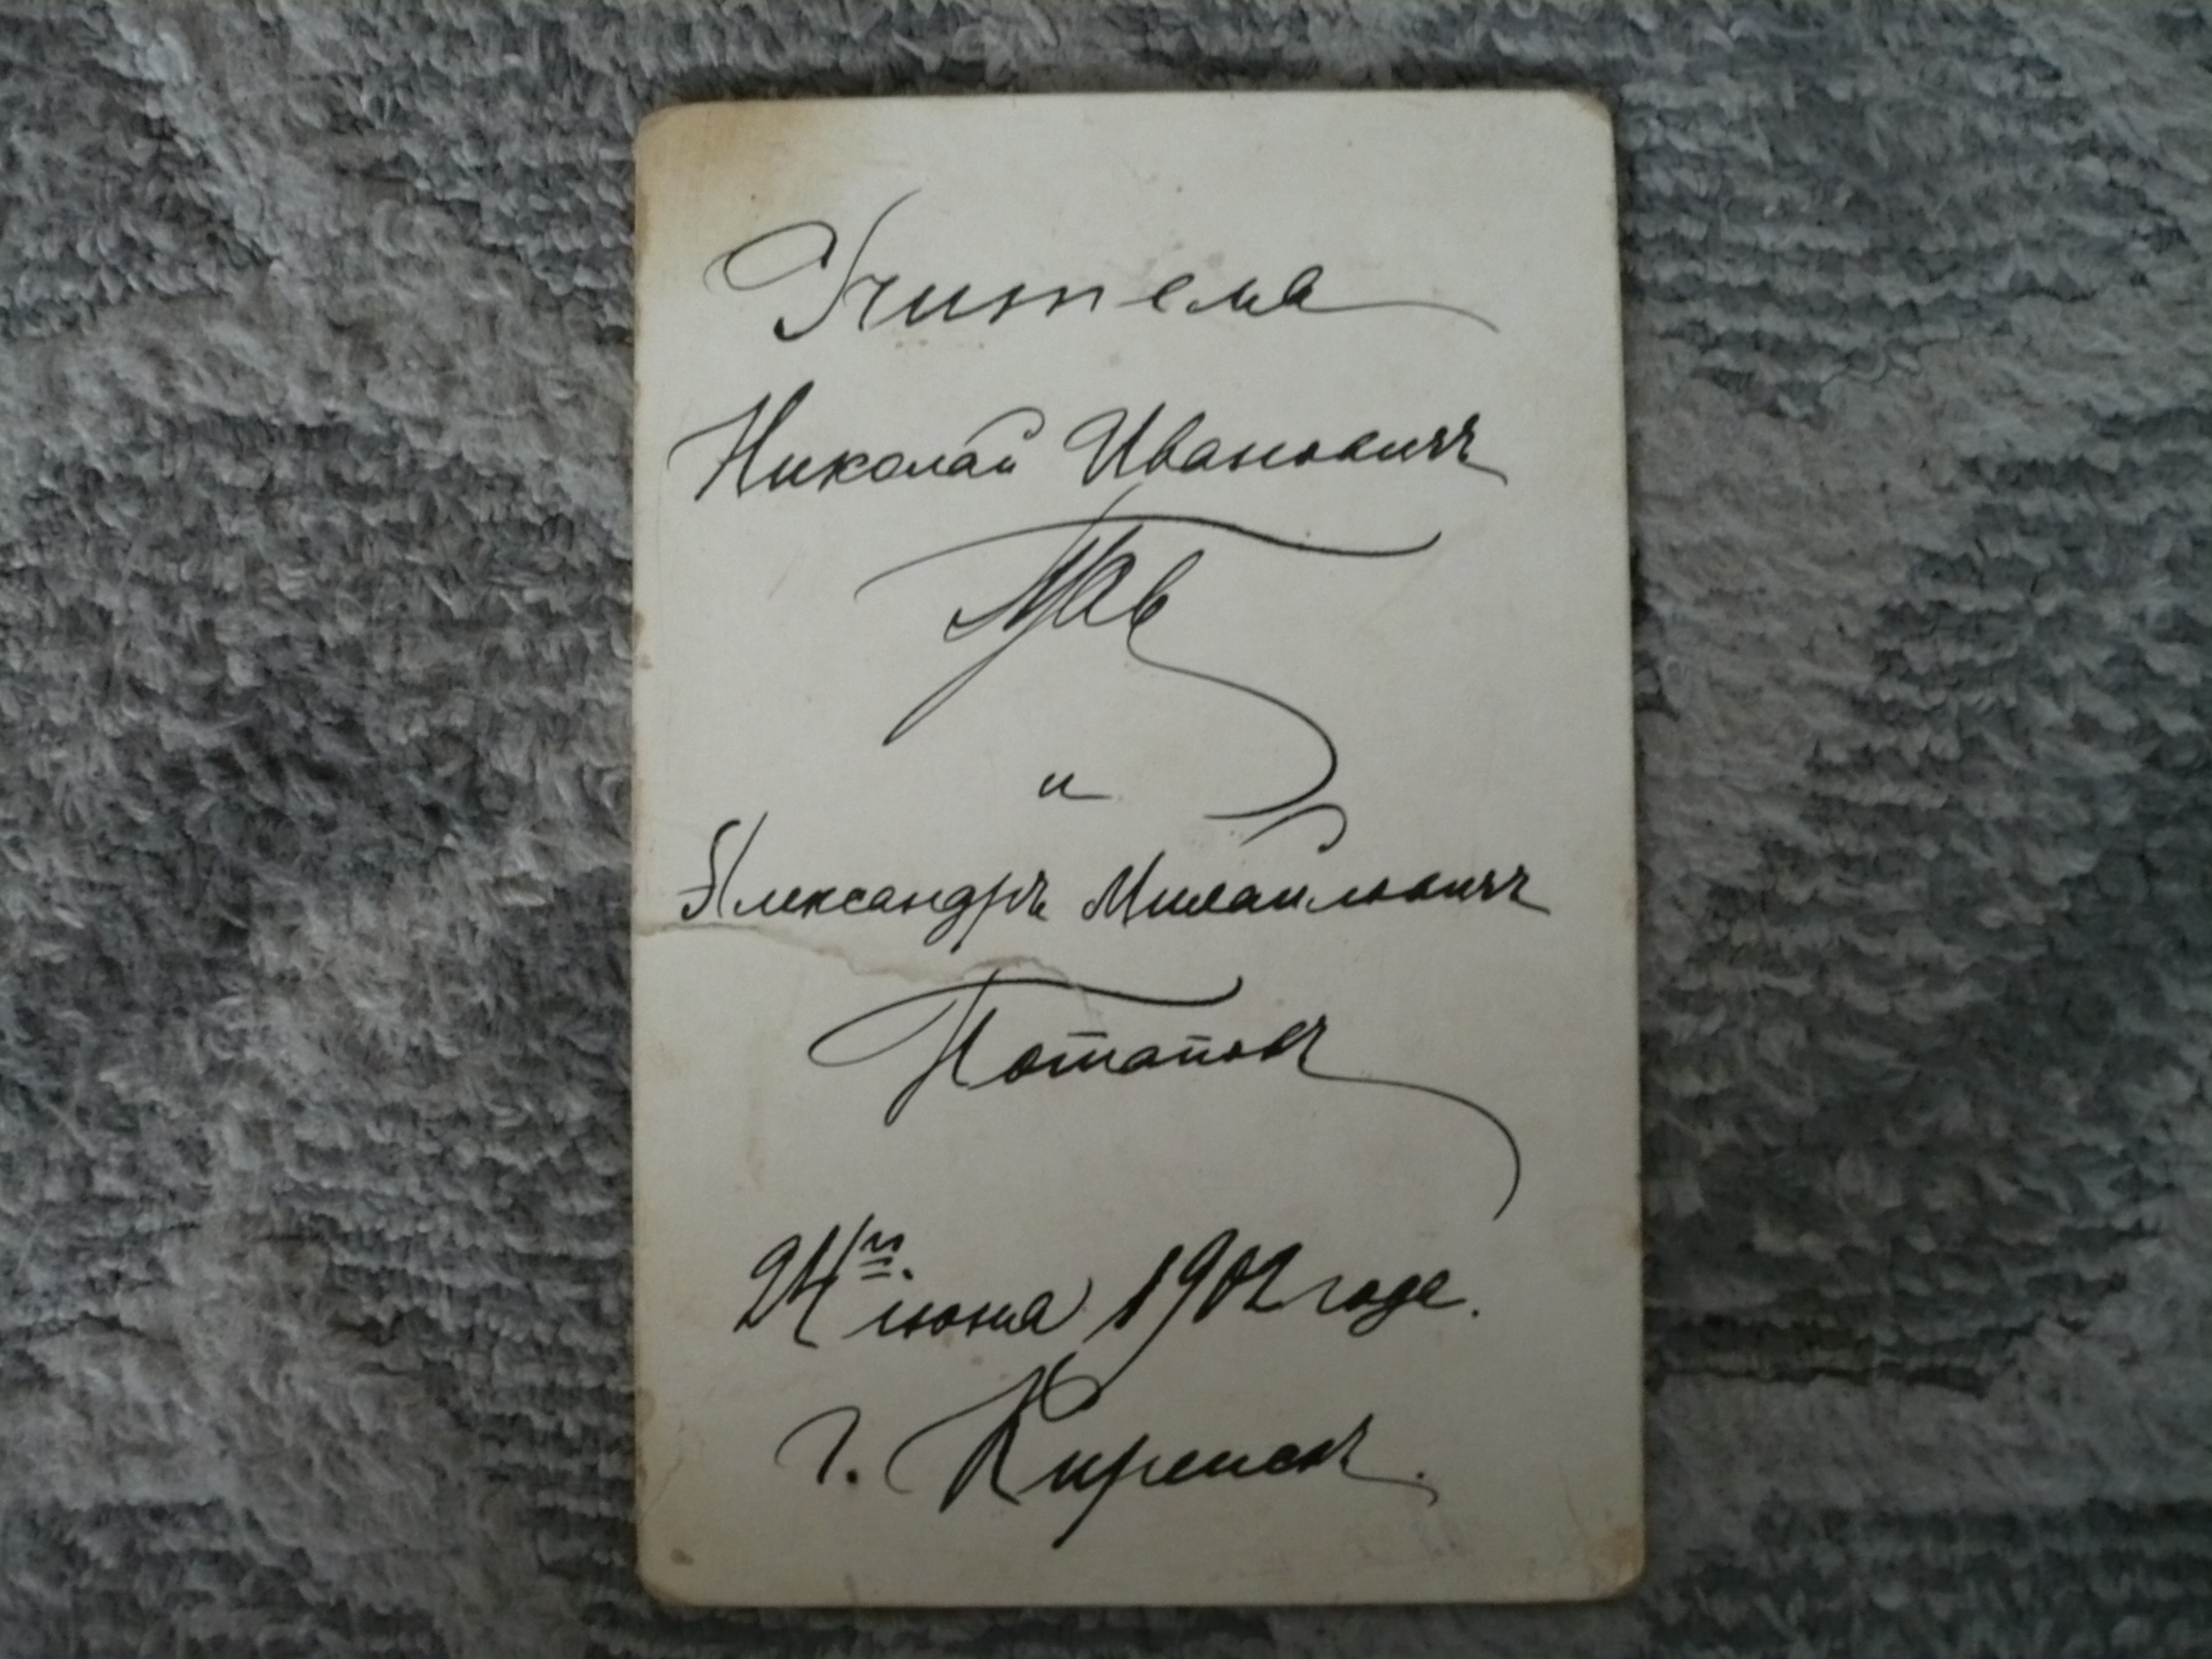 Учителя
Николай Ивановичъ
и
Александръ Михайловичъ
Потаповъ
24го июня 1902 года.
г. Киренскъ.